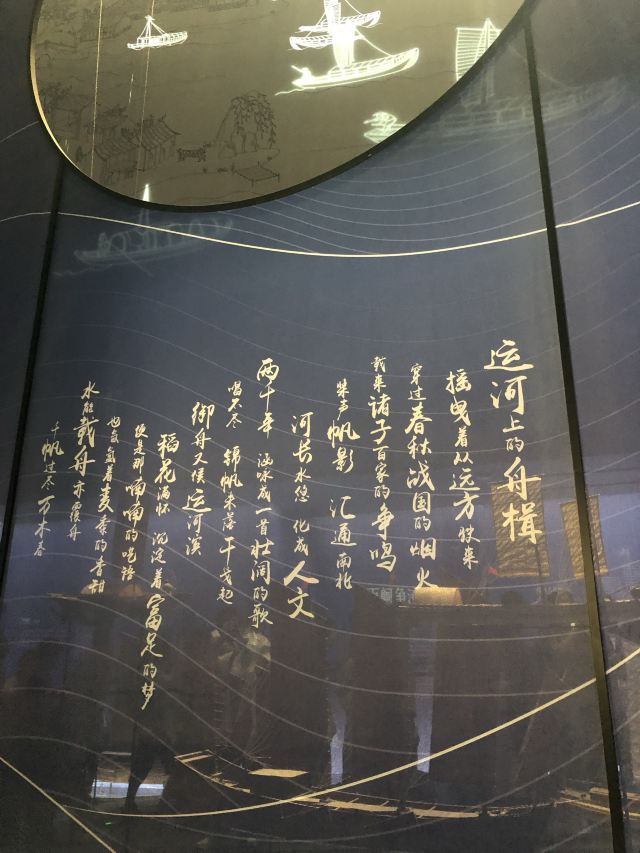 运河上的舟楫
摇曳着从远方驶来
穿过春秋战国的烟火
载来诸子百家的争鸣
桨声帆影 汇通南北
河长水悠 化成人文
两千年 成一首壮阔的歌
唱不尽 锦帆未落干戈起
御舟又 运河滨
稻花满怀 沉淀着富足的梦
便是那喃喃的呓语
也氤氲着麦黍的香甜
水能载舟 亦覆舟
千帆过尽 万木春